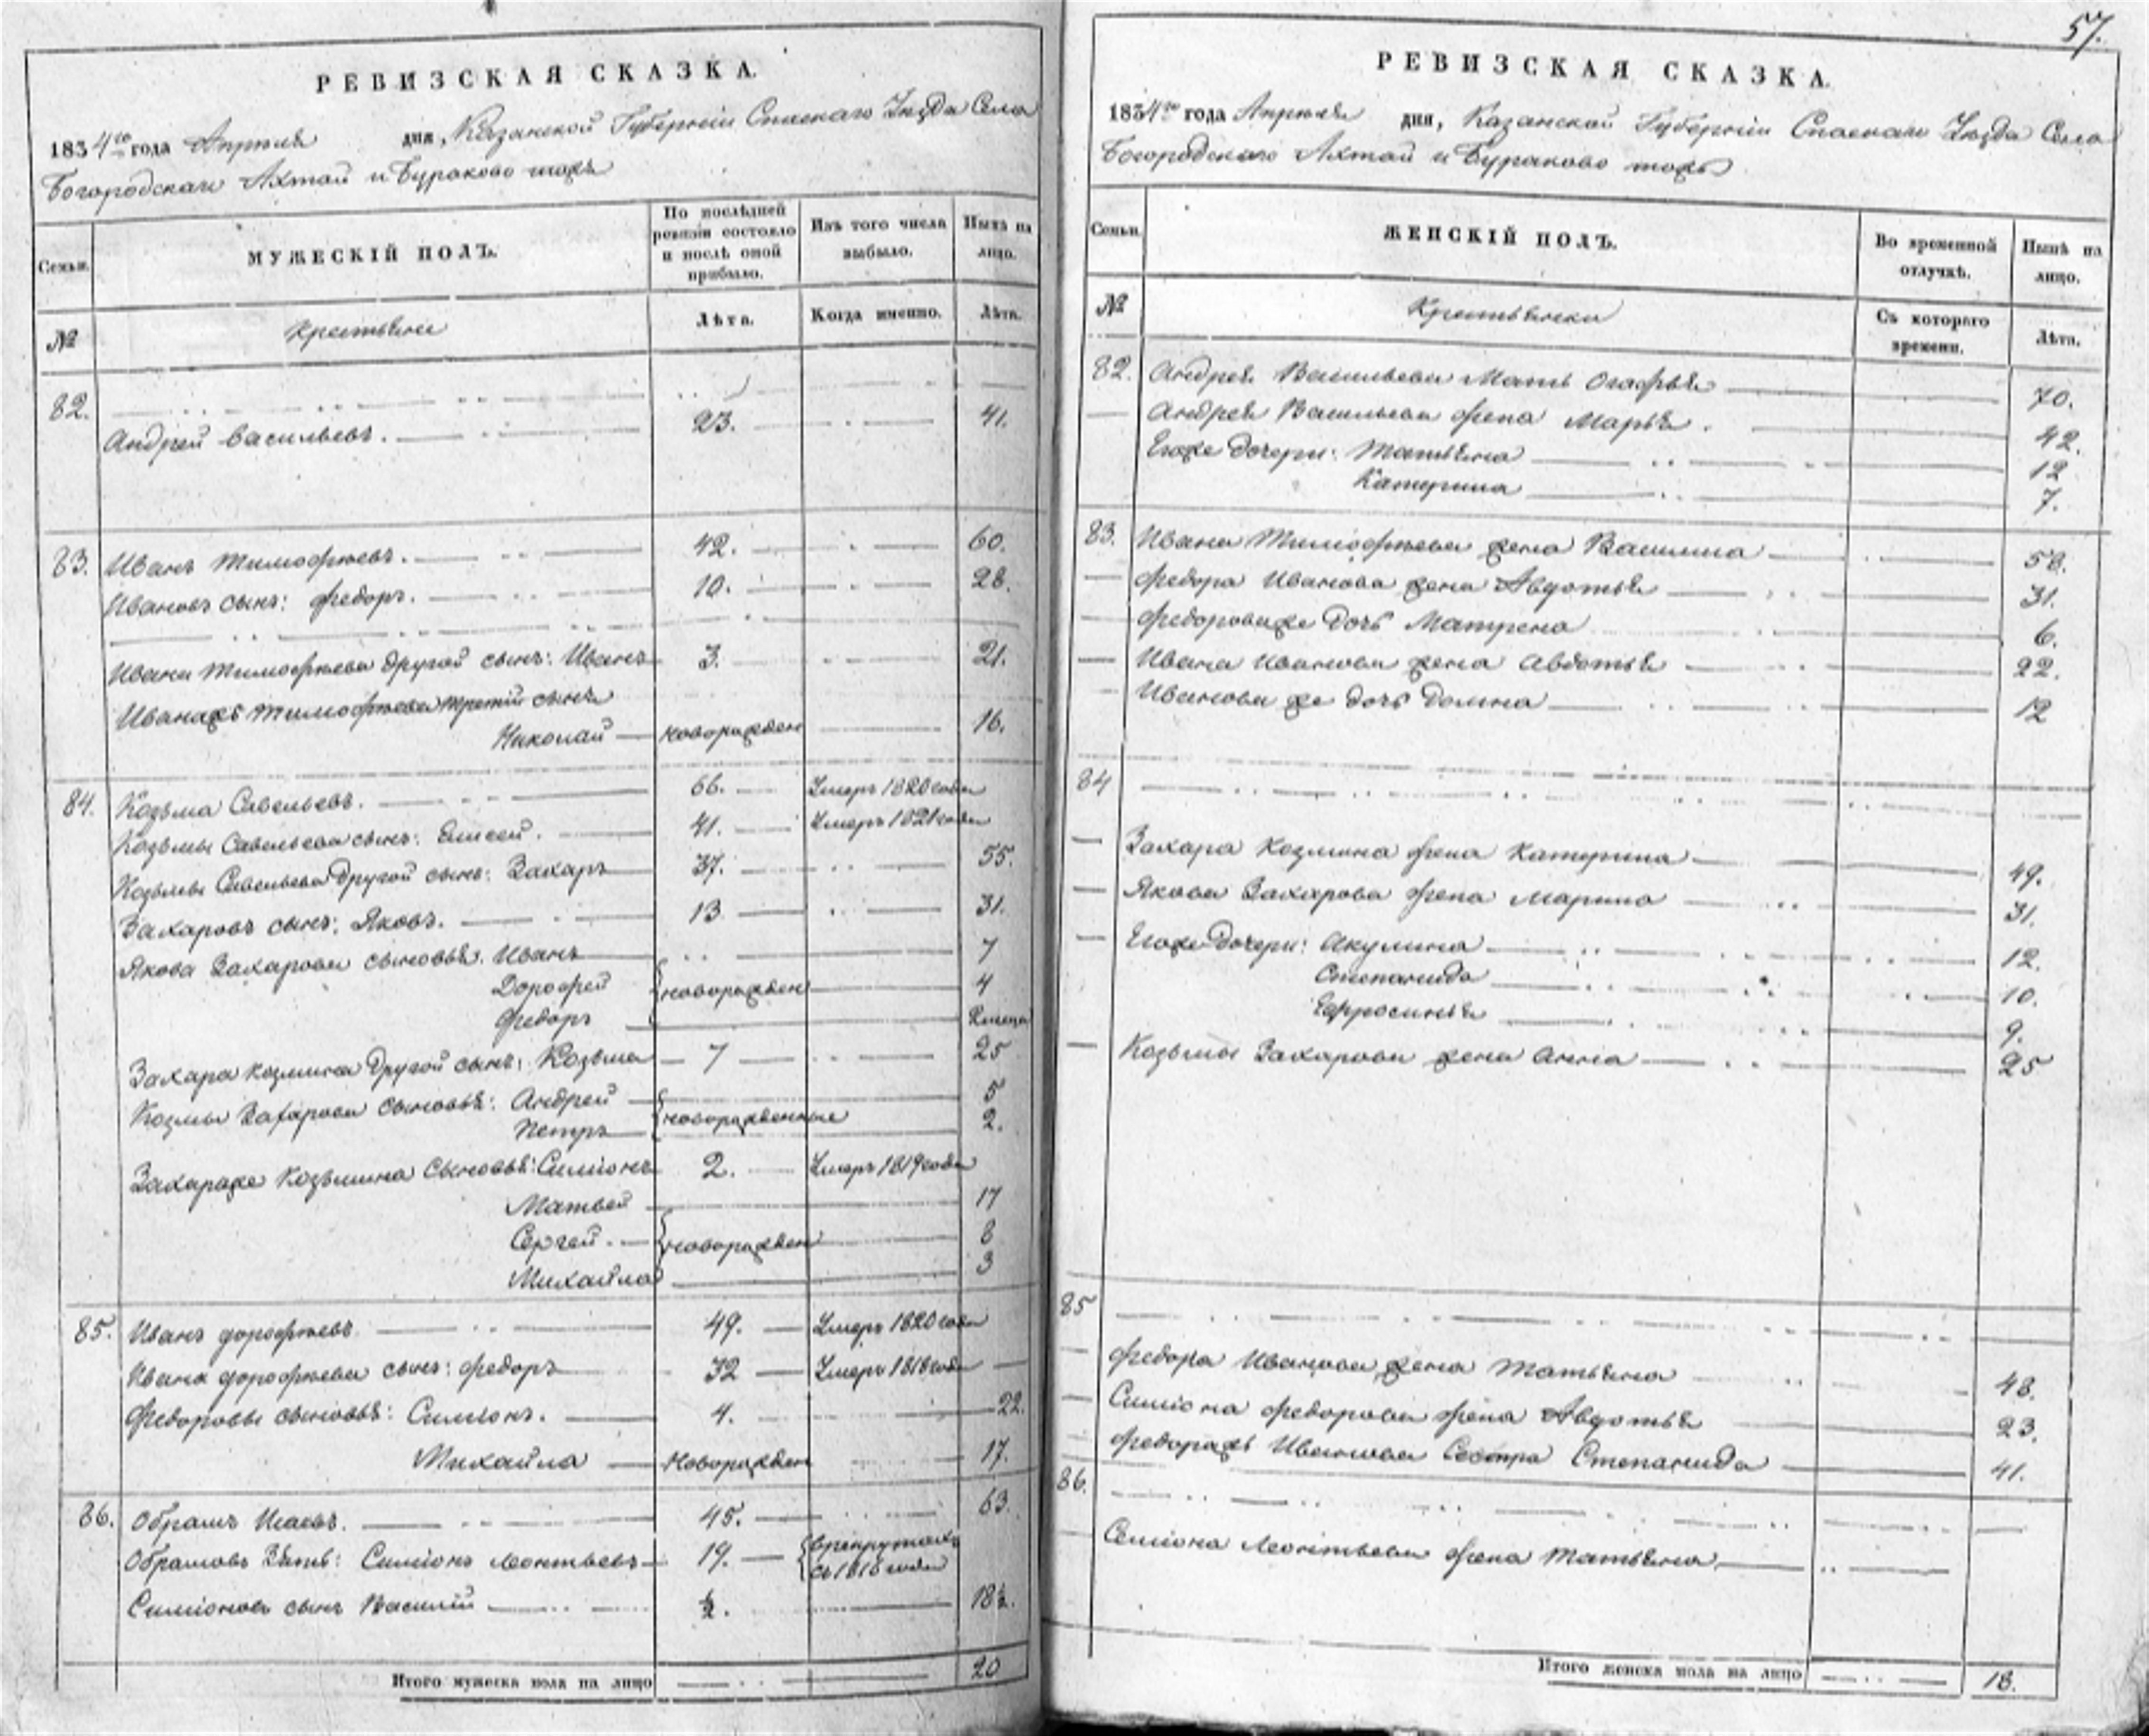 РЕВИЗСКАЯ СКАЗКА.
1834го года Апреля дня, Казанской Губернiи Спаскаго Уезда Села
Богородскаго Ахтай и Бураково тожъ
Семьи. МУЖЕСКIЙ ПОЛЪ. По последней ревизiи состояло и после оной прибыло. Изъ того числа выбыло. Ныне на лицо.
№ Крестьяне Лета. Когда именно. Лета.
82.
Андрей Васильевъ. 23. 41.
83. Иванъ Тимофеевъ. 42. 60.
Ивановъ сынъ: Федоръ. 10. 28.
Ивана Тимофеева другой сынъ: Иванъ 3. 21.
Иванажъ Тимофеева третiй сынъ
Николай новорожден 16.
84. Козьма Савельевъ. 66. Умеръ 1820 года
Козьмы Савельева сынъ: Елисей. 41. Умеръ 1821 года
Козьмы Савельева другой сынъ: Захаръ 37. 55.
Захаровъ сынъ: Яковъ. 13 31.
Якова Захарова сыновья: Иванъ 7
Дорофей новорожден 4
Федоръ
Захара Козмина другой сынъ: Козьма 7 25
Козмы Захарова сыновья: Андрей 5
новорожденные
Петръ 2.
Захараже Козьмина сыновья: Симiонъ 2. Умеръ 1819 года
Матвей 17
Сергей. новорожден 8
Михайла 3
85. Иванъ Дорофеевъ 49. Умеръ 1820 года
Ивана Дорофеева сынъ: Федоръ 32 Умеръ 1818 года
Федоровы сыновья: Симiонъ. 4. 22.
Михайла новорожден 17.
86. Обрамъ Исаевъ. 45. 63.
Обрамовъ зять: Симiонъ Леонтьевъ 19. в рекрутахъ
съ 1818 года
Симiоновъ сынъ Василiй ½. 18½.
Итого мужеска пола на лицо 20
57.
РЕВИЗСКАЯ СКАЗКА.
1834го года Апреля дня, Казанской Губернiи Спаскаго Уезда Села
Богородскаго Ахтай и Бураково тожъ
Семьи. ЖЕНСКIЙ ПОЛЪ. Во временной отлучке. Ныне на лицо.
№ Крестьянки Съ котораго времени. Лета.
82. Андрея Васильева мать Огафья 70.
Андрея Васильева жена Марья. 42.
Егоже дочери: Татьяна 12
Катерина 7.
83. Ивана Тимофеева жена Василиса 58.
Федора Иванова жена Авдотья 31.
Федороваже дочь Матрена 6.
Ивана Иванова жена Авдотья 22.
Иванова же дочь Домна 12
84
Захара Козмина жена Катерина 49.
Якова Захарова жена Марина 31.
Егоже дочери: Акулина 12.
Степанида 10.
Ефросинья 9.
Козьмы Захарова жена Анна 25
85
Федора Иванова жена Татьяна 48.
Симiона Федорова жена Авдотья 23.
Федоражъ Иванова сестра Степанида 41.
86.
Семiона Леонтьева жена Татьяна
Итого женска пола на лицо 18.